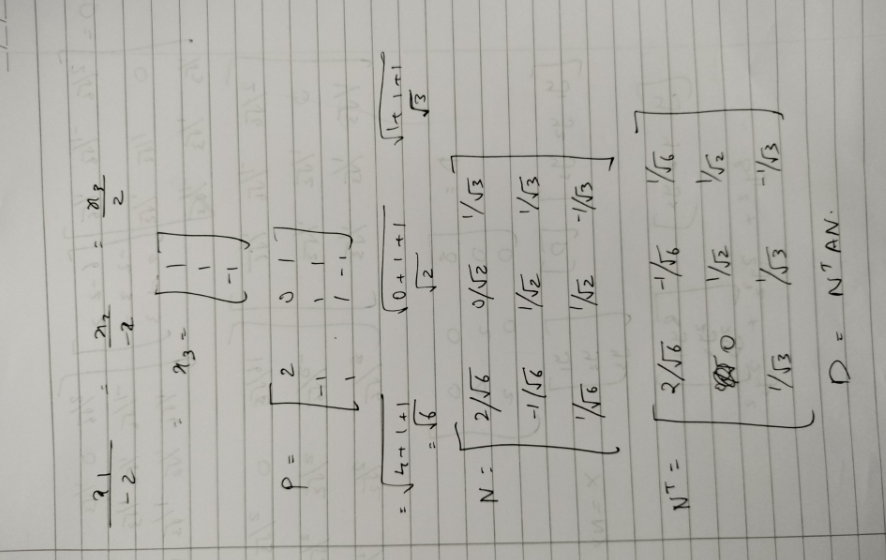 x1/-2 = x2/-2 = x3/2
x3 = [1 1 -1]
P = [2 0 1
-1 1 1
1 1 -1]
= √4+1+1 √0+1+1 √1+1+1
= √6 √2 √3
N = [2/√6 0/√2 1/√3
-1/√6 1/√2 1/√3
1/√6 1/√2 -1/√3]
N^T = [2/√6 -1/√6 1/√6
0 1/√2 1/√2
1/√3 1/√3 -1/√3]
D = N^T AN.